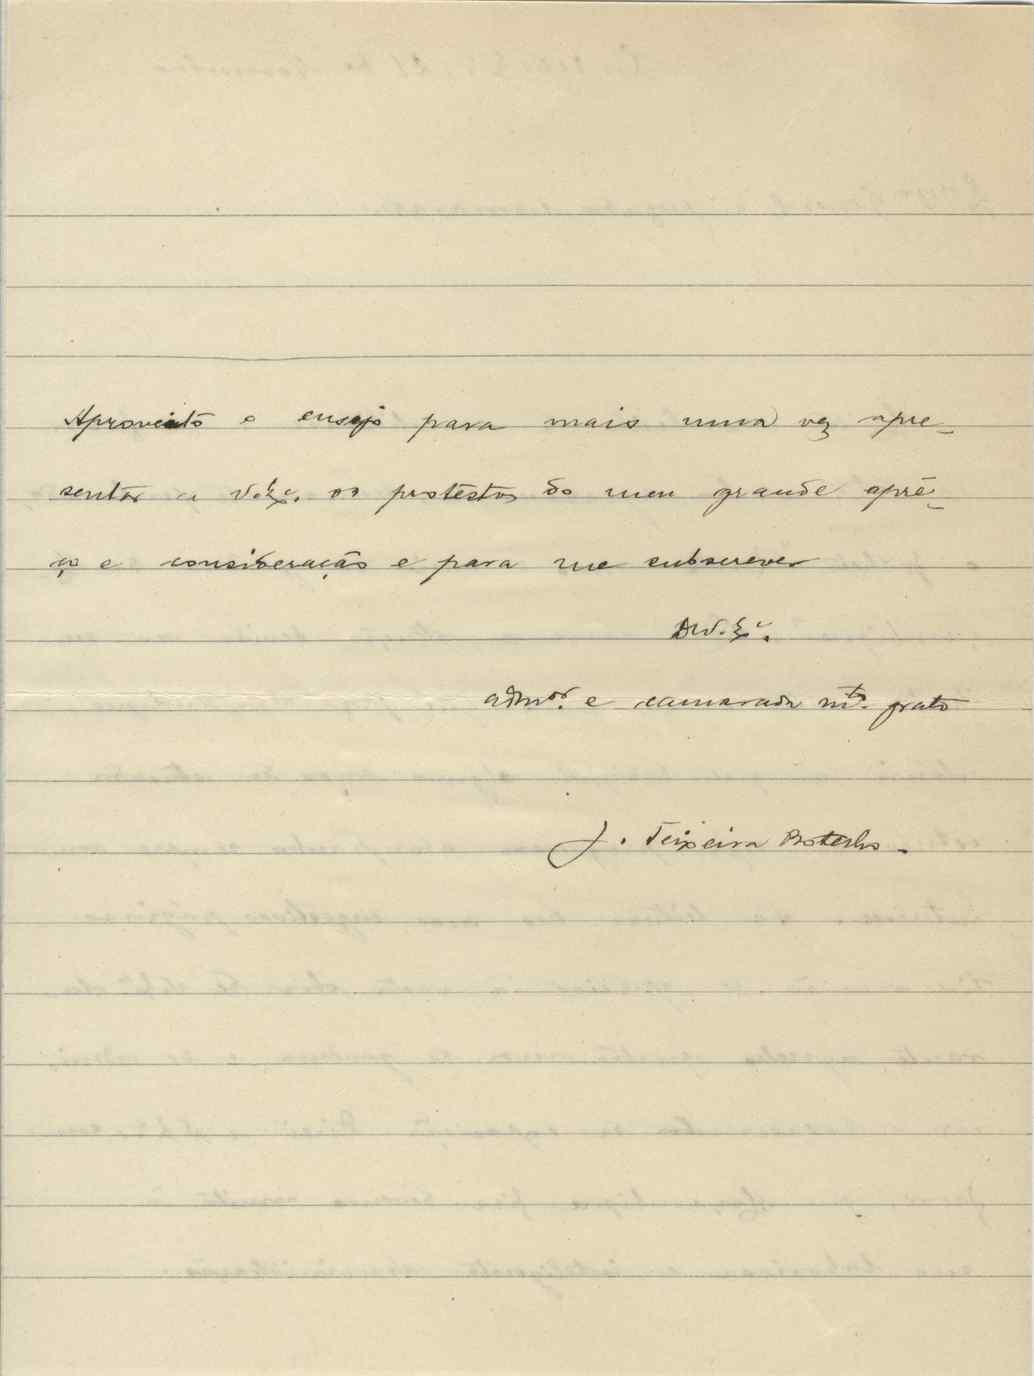 Aproveito o ensejo para mais uma vez apre-
sentar a V. Exª. os protestos do meu grande apre-
ço e consideração e para me subscrever
De V. Exª.
admºr. e camarada mtº. grato
J. Teixeira Botelho.